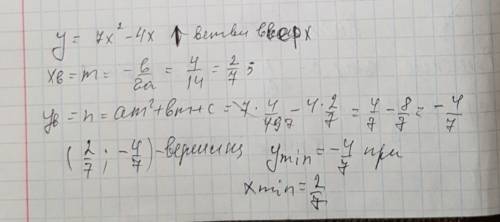 y = 7x² - 4x ↑ ветви вверх
xв = m = -в/2a = 4/14 = 2/7;
yв = n = am² + вm + c = 7 · 4/49 - 4 · 2/7 = 4/7 - 8/7 = -4/7
(2/7; -4/7) - вершина ymin = -4/7 при
xmin = 2/7